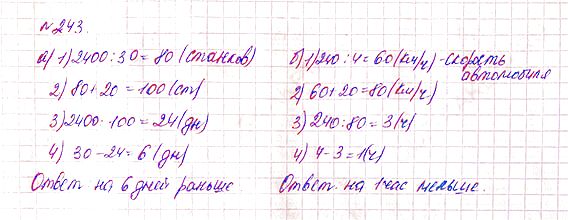 № 243.
а) 1) 2400 : 30 = 80 (станков)
2) 80 + 20 = 100 (ст)
3) 2400 · 100 = 24 (дн)
4) 30 - 24 = 6 (дн)
Ответ на 6 дней раньше.
б) 1) 240 : 4 = 60 (км/ч) - скорость
автомобиля
2) 60 + 20 = 80 (км/ч)
3) 240 : 80 = 3 (ч)
4) 4 - 3 = 1 (ч)
Ответ. на 1 час меньше.